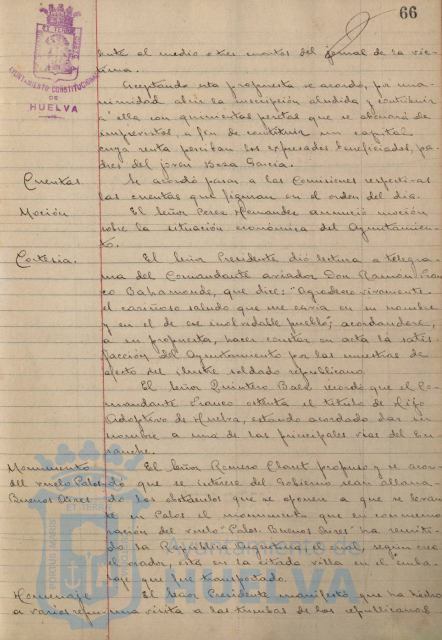 66
AYUNTAMIENTO CONSTITUCIONAL
DE
HUELVA
al medio o tres cuartos del jornal de la víc-
tima.
Aceptando esta propuesta se acordó, por una-
nimidad abrir la suscripción aludida y contribuir
a ella con quinientas pesetas que se abonará de
imprevistos, a fin de constituir un capital
cuya renta perciban los expresados beneficiados, pa-
dres del joven Beza García.
Cuentas
Se acordó pasar a las Comisiones respectivas
las cuentas que figuran en el orden del día.
Moción
El Señor Perez Hernandez anunció moción
sobre la situación económica del Ayuntamien-
to.
Cortesía.
El Señor Presidente dió lectura a telegra-
ma del Comandante aviador Don Ramón Fran-
co Bahamonde, que dice: "Agradezco vivamente
el cariñoso saludo que me envia en su nombre
y en el de ese inolvidable pueblo"; acordandose,
a su propuesta, hacer constar en acta la satis-
facción del Ayuntamiento por las muestras de
afecto del ilustre soldado republicano.
El Señor Quintero Baez recordó que el Co-
mandante Franco ostenta el titulo de Hijo
Adoptivo de Huelva, estando acordado dar su
nombre a una de las principales vias del En-
sanche.
Monumento
del vuelo Palos
Buenos Aires
El Señor Romero Claret propuso y se acor-
dó que se interese del Gobierno sean allana-
dos los obstáculos que se oponen a que se levan-
te en Palos el monumento que en conmemo-
ración del vuelo "Palos-Buenos Aires" ha remiti-
do la República Argentina, el cual, según cree
el orador, está en la citada villa en el emba-
laje que fue transportado.
Homenaje
a varios repu-
El Señor Presidente manifestó que ha hecho
una visita a las tumbas de los republicanos
PORTUS MARIS
ET TERRAE
HUELVA